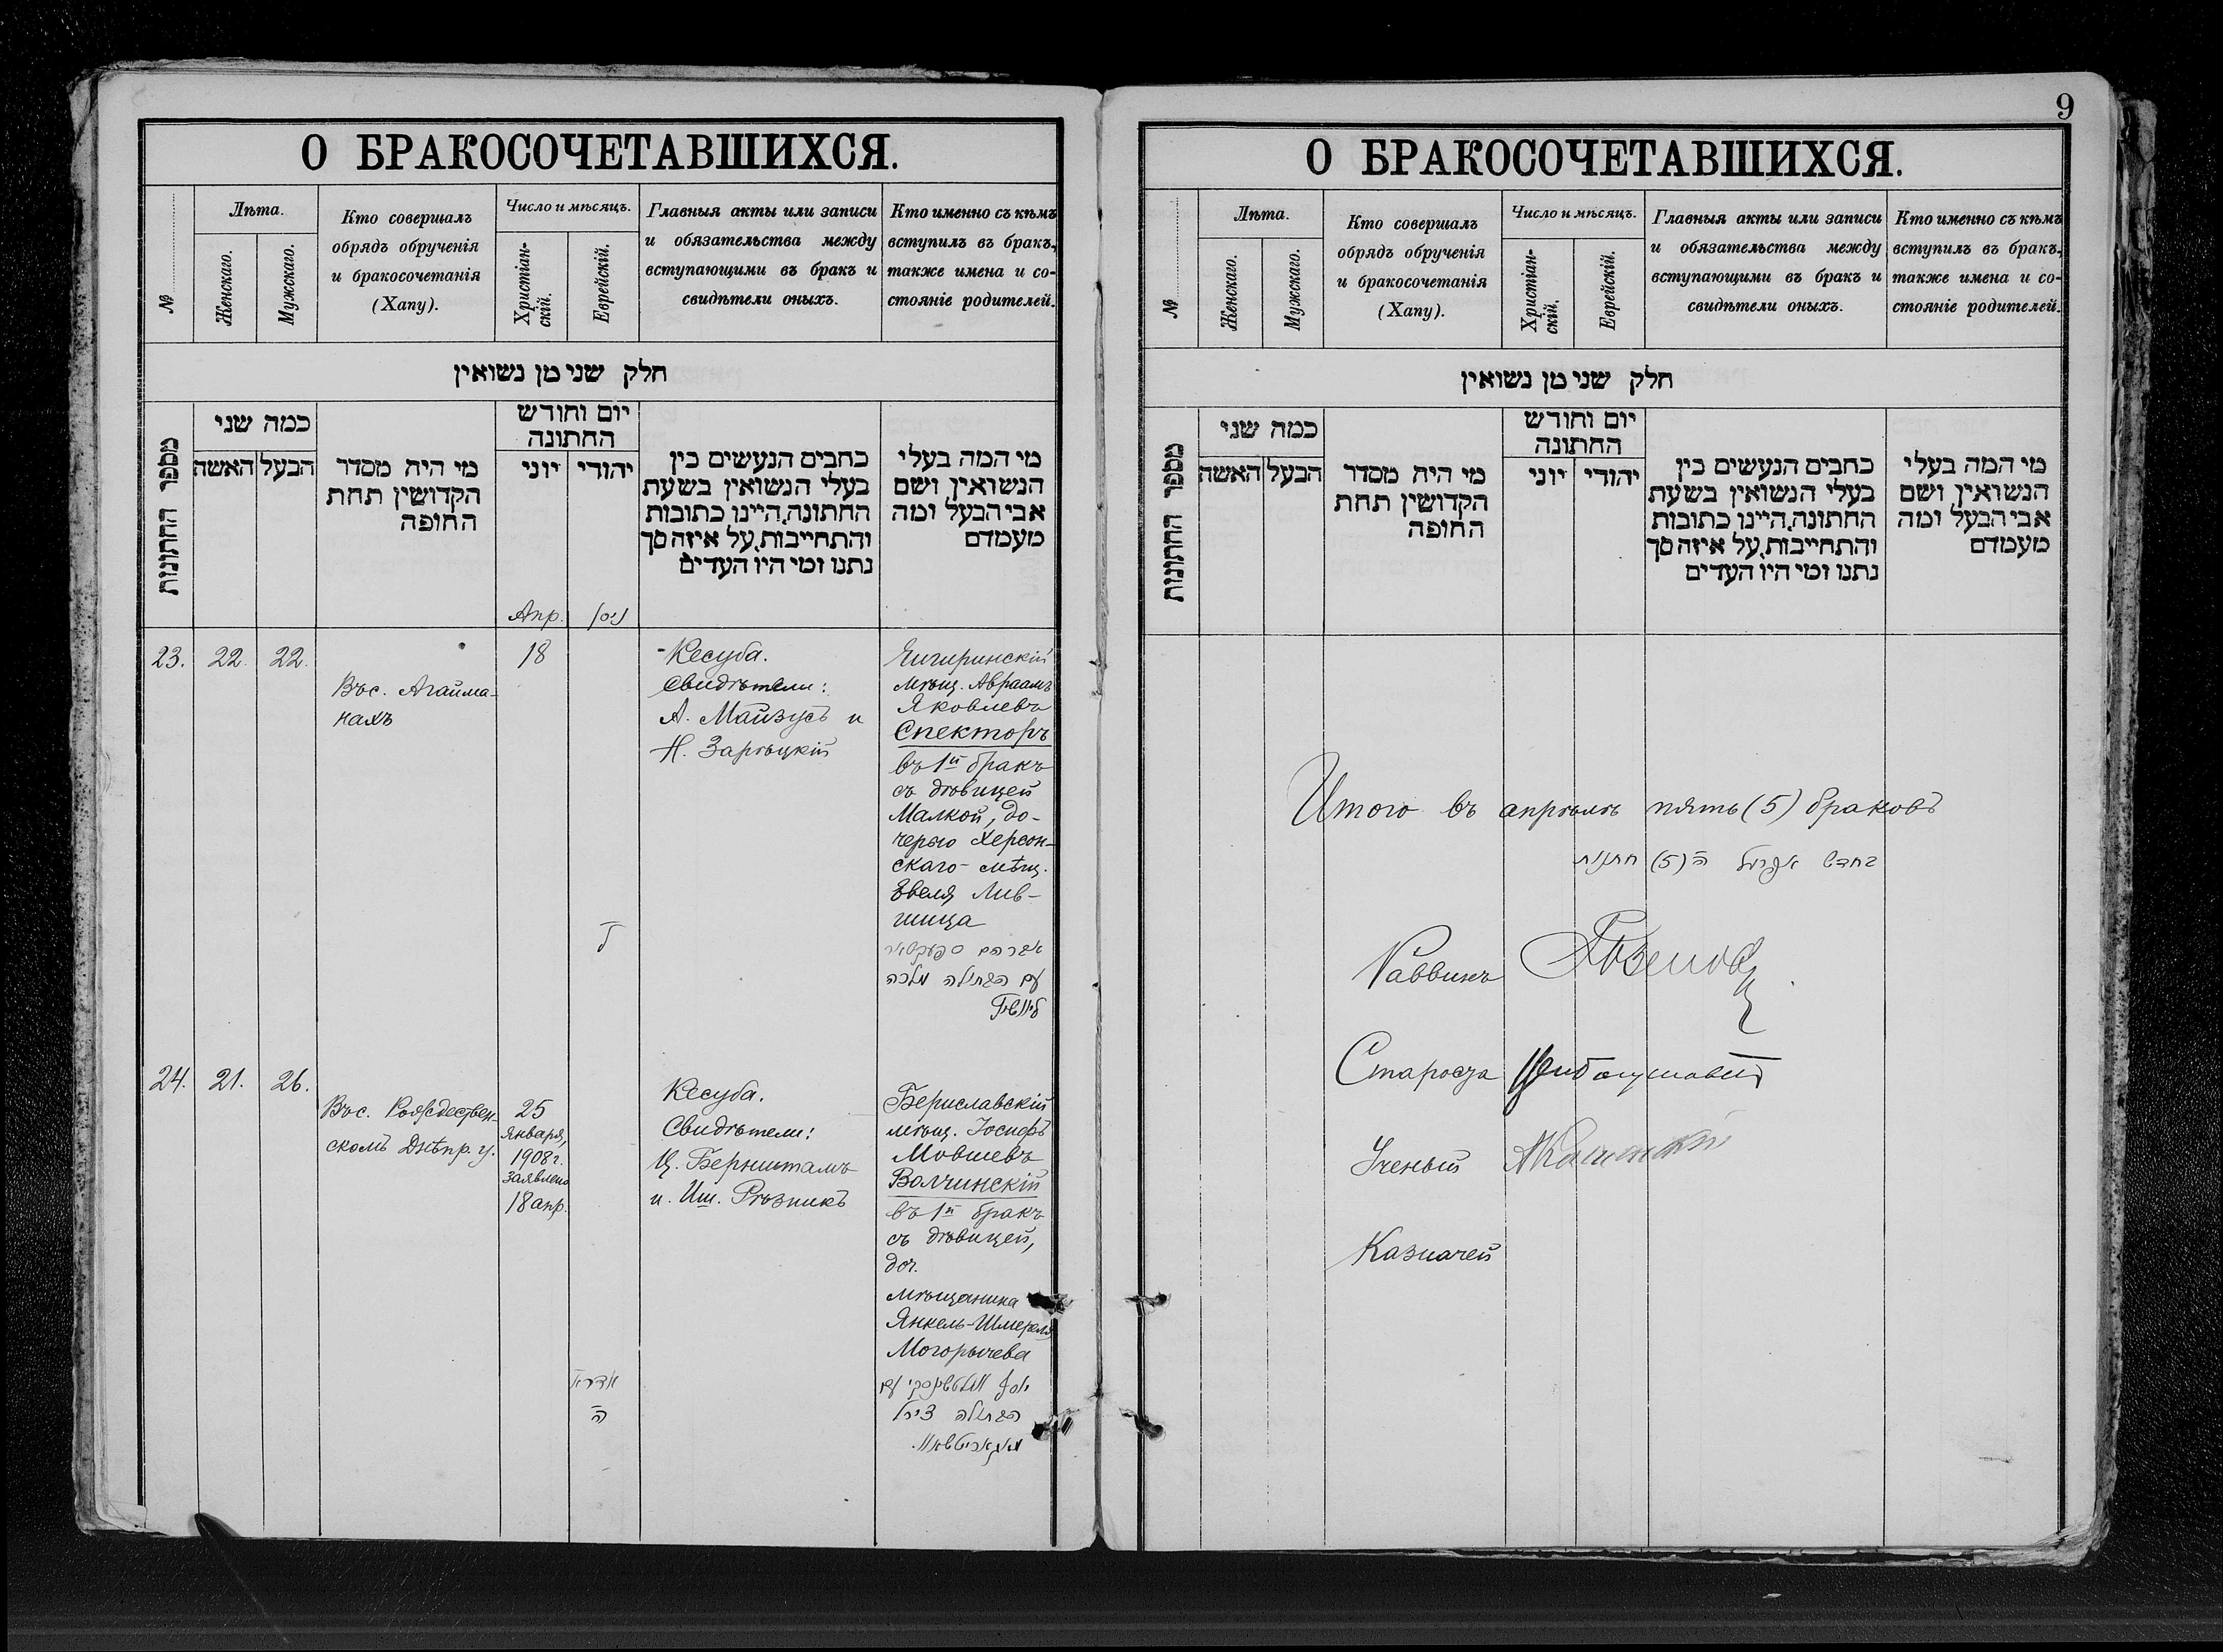 О БРАКОСОЧЕТАВШИХСЯ.
№
Лѣта.
Женскаго.
Мужскаго.
Кто совершалъ
обрядъ обрученія
и бракосочетанія
(Хапу).
Число и мѣсяцъ.
Христіан-
скій.
Еврейскій.
Главныя акты или записи
и обязательства между
вступающими въ бракъ и
свидѣтели оныхъ.
Кто именно съ кѣмъ
вступилъ въ бракъ,
также имена и со-
стояніе родителей.
חלק שני מן נשואין
מספר החתונות
כמה שני
האשה
הבעל
מי היה מסדר
הקדושין תחת
החופה
יום וחודש
החתונה
יוני
יהודי
כתבים הנעשים בין
בעלי הנשואין בשעת
החתונה, היינו כתובות
והתחייבות, על איזה סך
נתנו ומי היו העדים
מי המה בעלי
הנשואין ושם
אבי הבעל ומה
מעמדם
Апр.
ניסן
23.
22.
22.
Въ с. Агайма-
нахъ
18
Кесуба.
Свидѣтели:
А. Майзусъ и
Н. Зарѣцкій
Чигиринскій
мѣщ. Авраамъ
Яковлевъ
Спекторъ
въ 1й бракъ
съ дѣвицей
Малкой, до-
черью Херсон-
скаго мѣщ.
Эвеля Лив-
шица
אברהם ספעקטאר
עם הבתולה מלכה
ליוושיץ
24.
21.
26.
Въ с. Рождествен-
скомъ Днѣпр. у.
25
Января,
1908 г.
заявлено
18 апр.
אדר א׳
ה
Кесуба.
Свидѣтели:
Ц. Бернштамъ
и Иш. Рѣзникъ
Бериславскій
мѣщ. Іосифъ
Мовшевъ
Волчинскій
въ 1й бракъ
съ дѣвицей,
доч.
мѣщанина
Янкель-Шмереля
Могорычева
יוסף וואלטשינסקי עם
הבתולה צירל
מאגאריטשאוו.
9
О БРАКОСОЧЕТАВШИХСЯ.
№
Лѣта.
Женскаго.
Мужскаго.
Кто совершалъ
обрядъ обрученія
и бракосочетанія
(Хапу).
Число и мѣсяцъ.
Христіан-
скій.
Еврейскій.
Главныя акты или записи
и обязательства между
вступающими въ бракъ и
свидѣтели оныхъ.
Кто именно съ кѣмъ
вступилъ въ бракъ,
также имена и со-
стояніе родителей.
חלק שני מן נשואין
מספר החתונות
כמה שני
האשה
הבעל
מי היה מסדר
הקדושין תחת
החופה
יום וחודש
החתונה
יוני
יהודי
כתבים הנעשים בין
בעלי הנשואין בשעת
החתונה, היינו כתובות
והתחייבות, על איזה סך
נתנו ומי היו העדים
מי המה בעלי
הנשואין ושם
אבי הבעל ומה
מעמדם
Итого въ апрѣлѣ пять (5) браковъ
בחדש אפריל ה (5) חתונות
Раввинъ
Староста
Ученый
Казначей